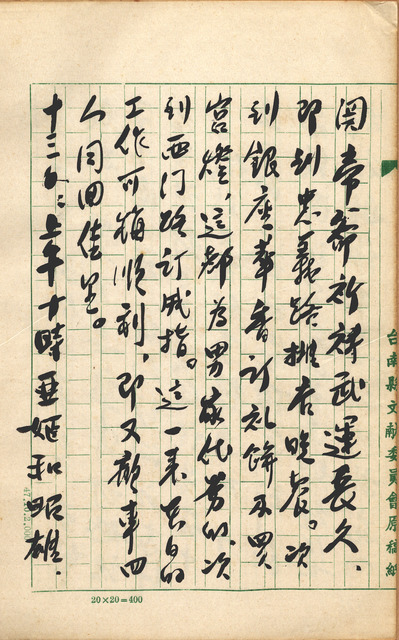 関帝爺祈禱武運長久、
即到忠義路推杏晚餐。次
到銀座華香訂礼餅及買
宮燈，這都為男家代勞的、次
到西门路訂戒指。這一表哀自的
工作可稱順利，即又鄰車四
人同回佳里。
十三日：上午十時亜姬和昭雄，
台南縣文獻委員會原稿紙
20×20=400